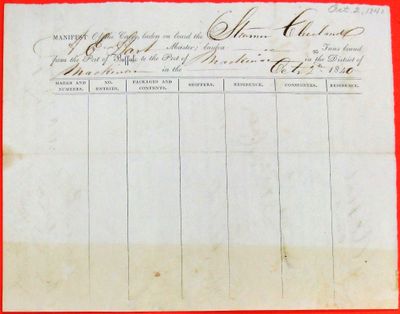 Oct 2, 1840
MANIFEST Of the Cargo laden on board the Steamer Cleveland
of C Hart Master; burden 95 Tons bound
from the Port of Buffalo to the Port of Mackinac in the District of
Mackinac in the Oct 2nd 1840
MARKS AND NUMBERS. NO. ENTRIES. PACKAGES AND CONTENTS. SHIPPERS. RESIDENCE. CONSIGNEES. RESIDENCE.